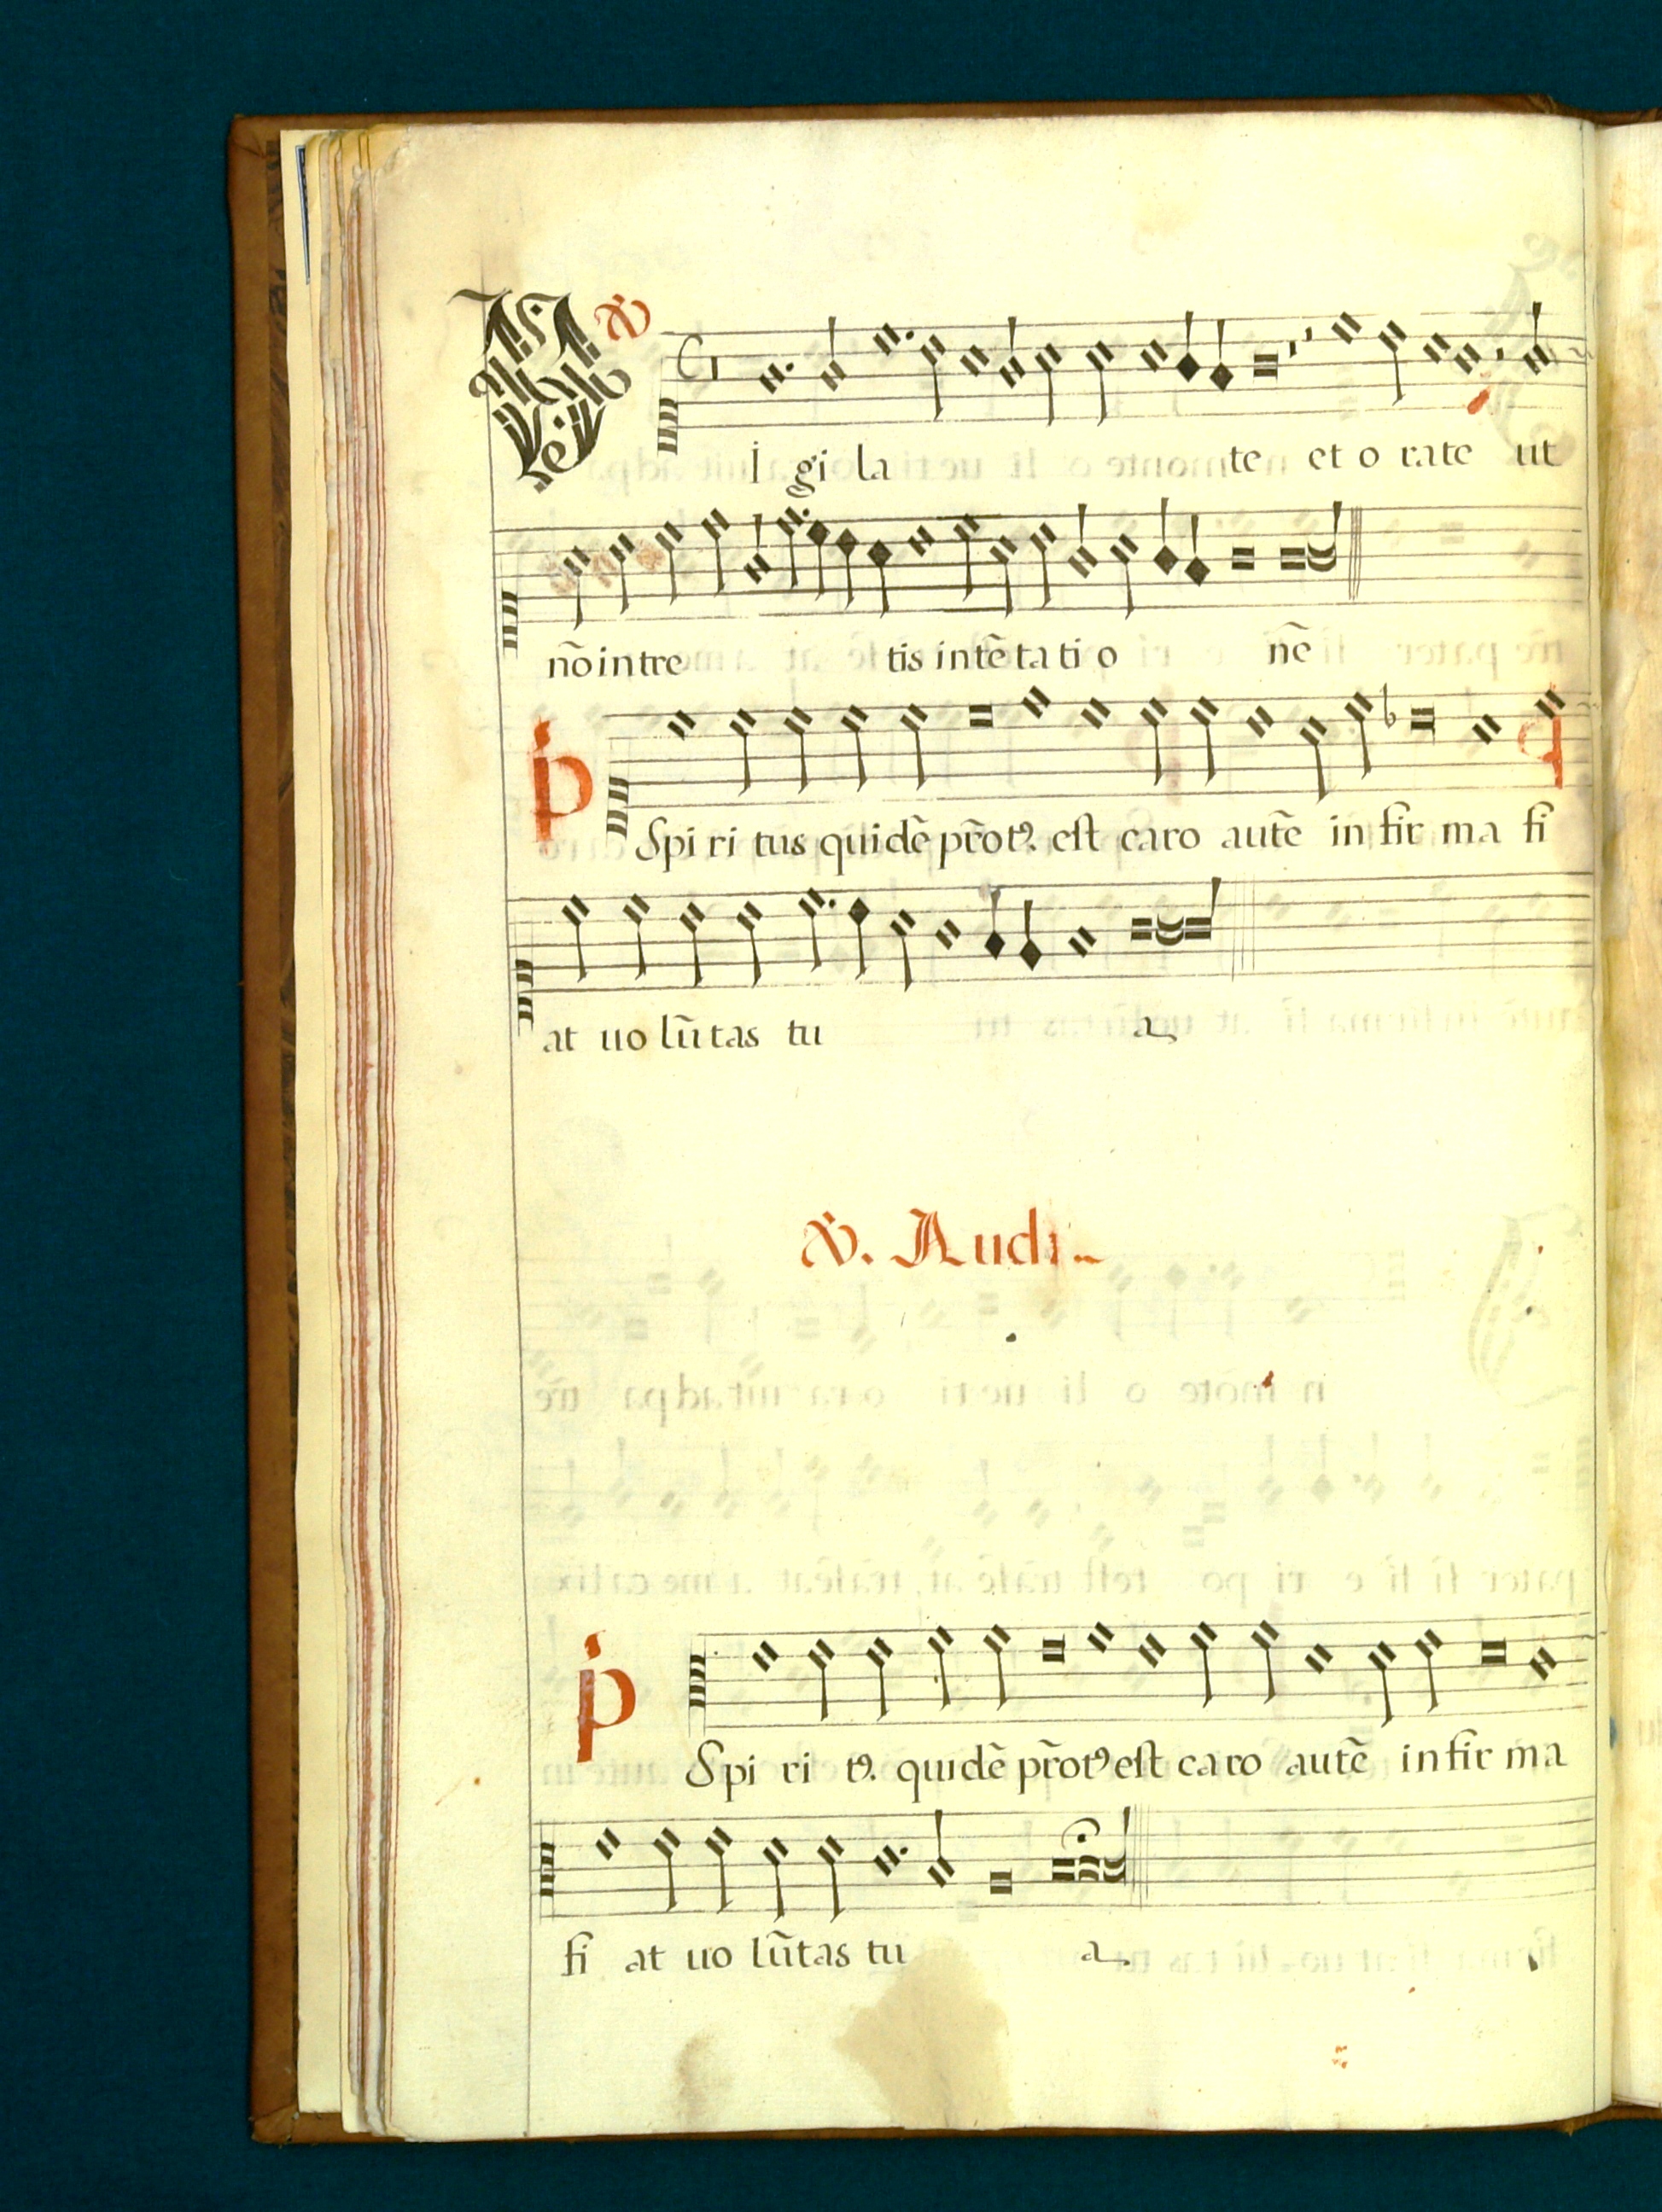 V I gi la te et o ra te ut
nõ in tre tis in tẽ ta ti o nẽ
p Spi ri tus qui dẽ pr̃otꝰ. est ca ro autẽ in fir ma fi
at uo lũ tas tu a
V. Audi
p Spi ri tꝰ. quidẽ pr̃otꝰ est ca ro autẽ in fir ma
fi at uo lũtas tu a